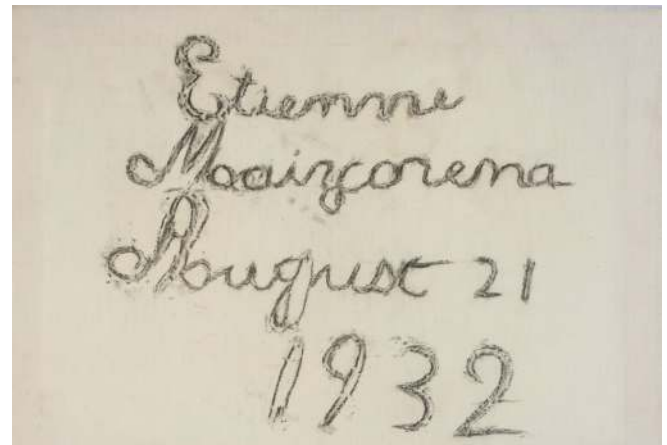 Etienne
Maizcorena
August 21
1932